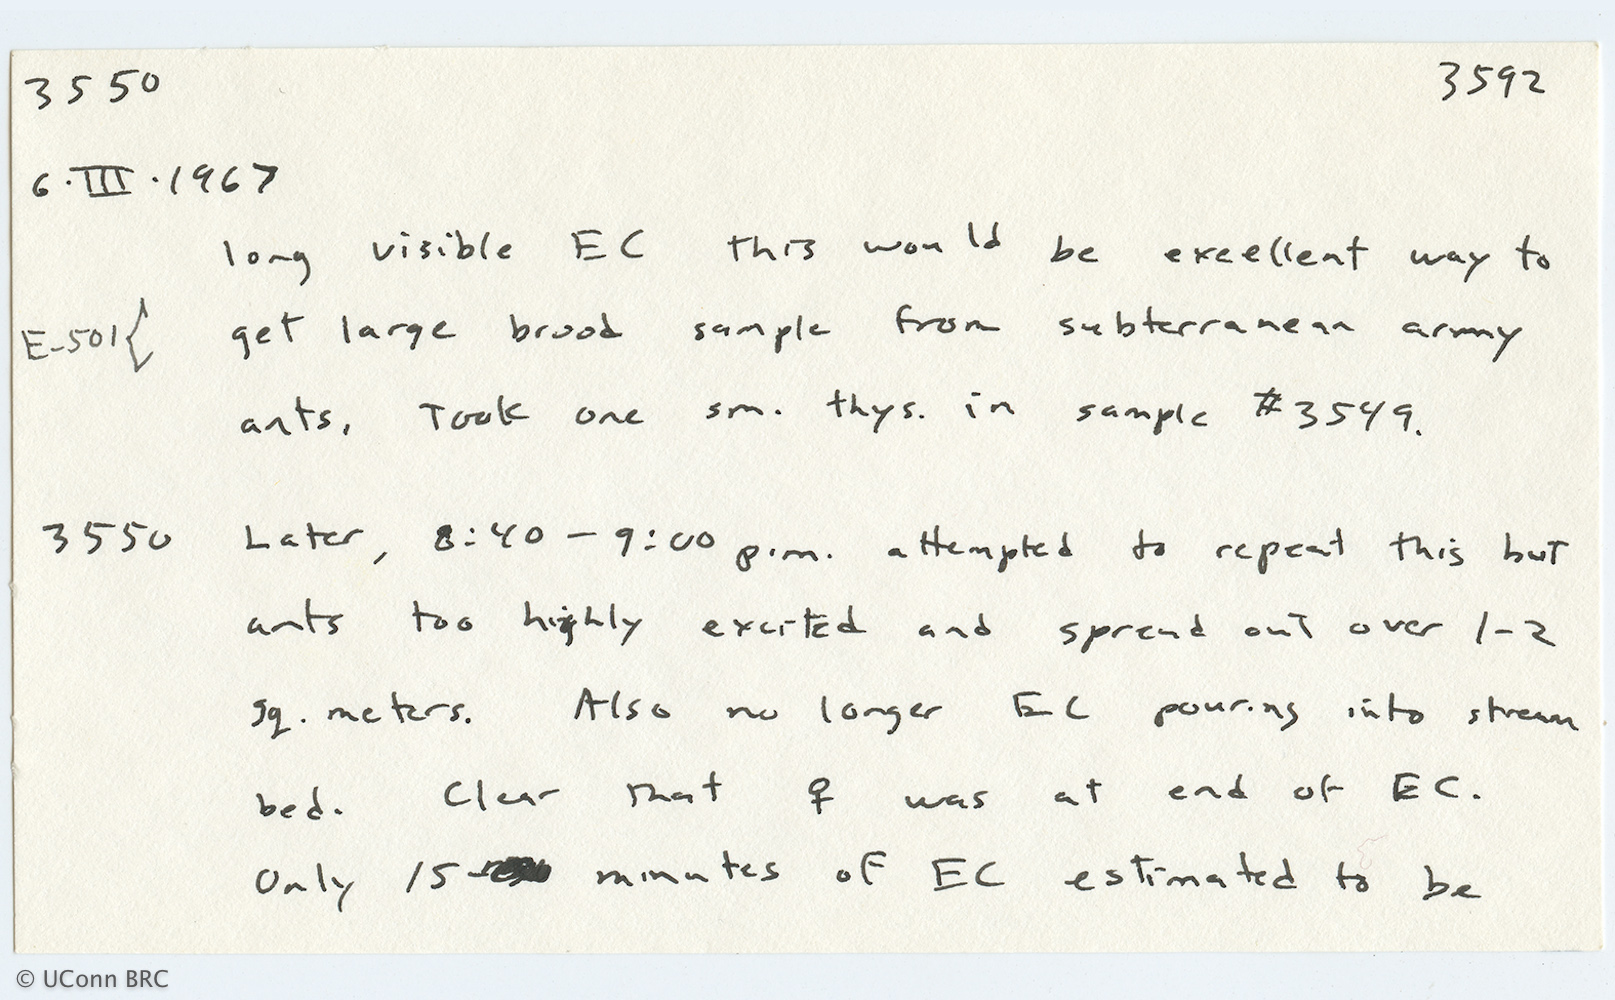 3550 3592
6·III·1967
long visible EC this would be excellent way to
E-501{ get large brood sample from subterranean army
ants. Took one sm. thys. in sample #3549.
3550 Later, 8:40 – 9:00 p.m. attempted to repeat this but
ants too highly excited and spread out over 1-2
sq. meters. Also no longer EC pouring into stream
bed. Clear that ♀ was at end of EC.
Only 15 minutes of EC estimated to be
© UConn BRC